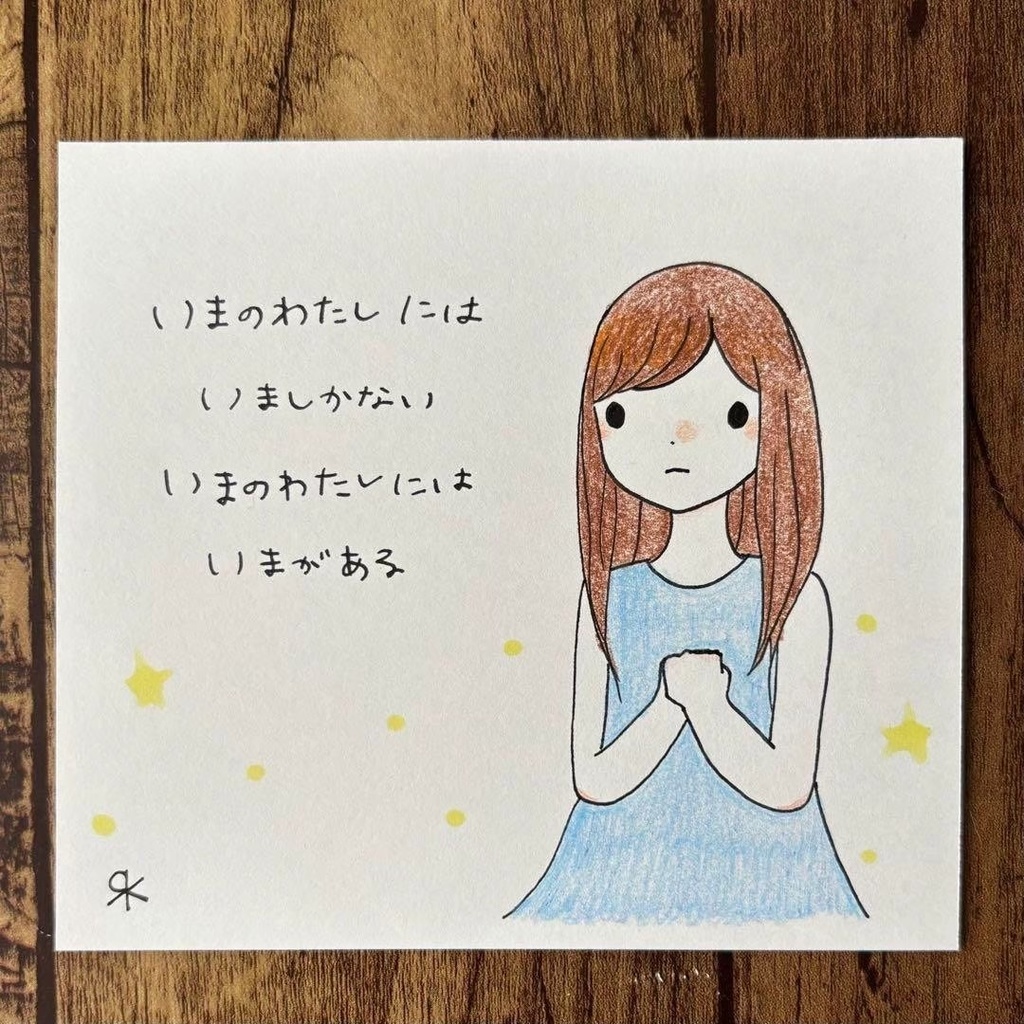 いまのわたしには
いましかない
いまのわたしには
いまがある